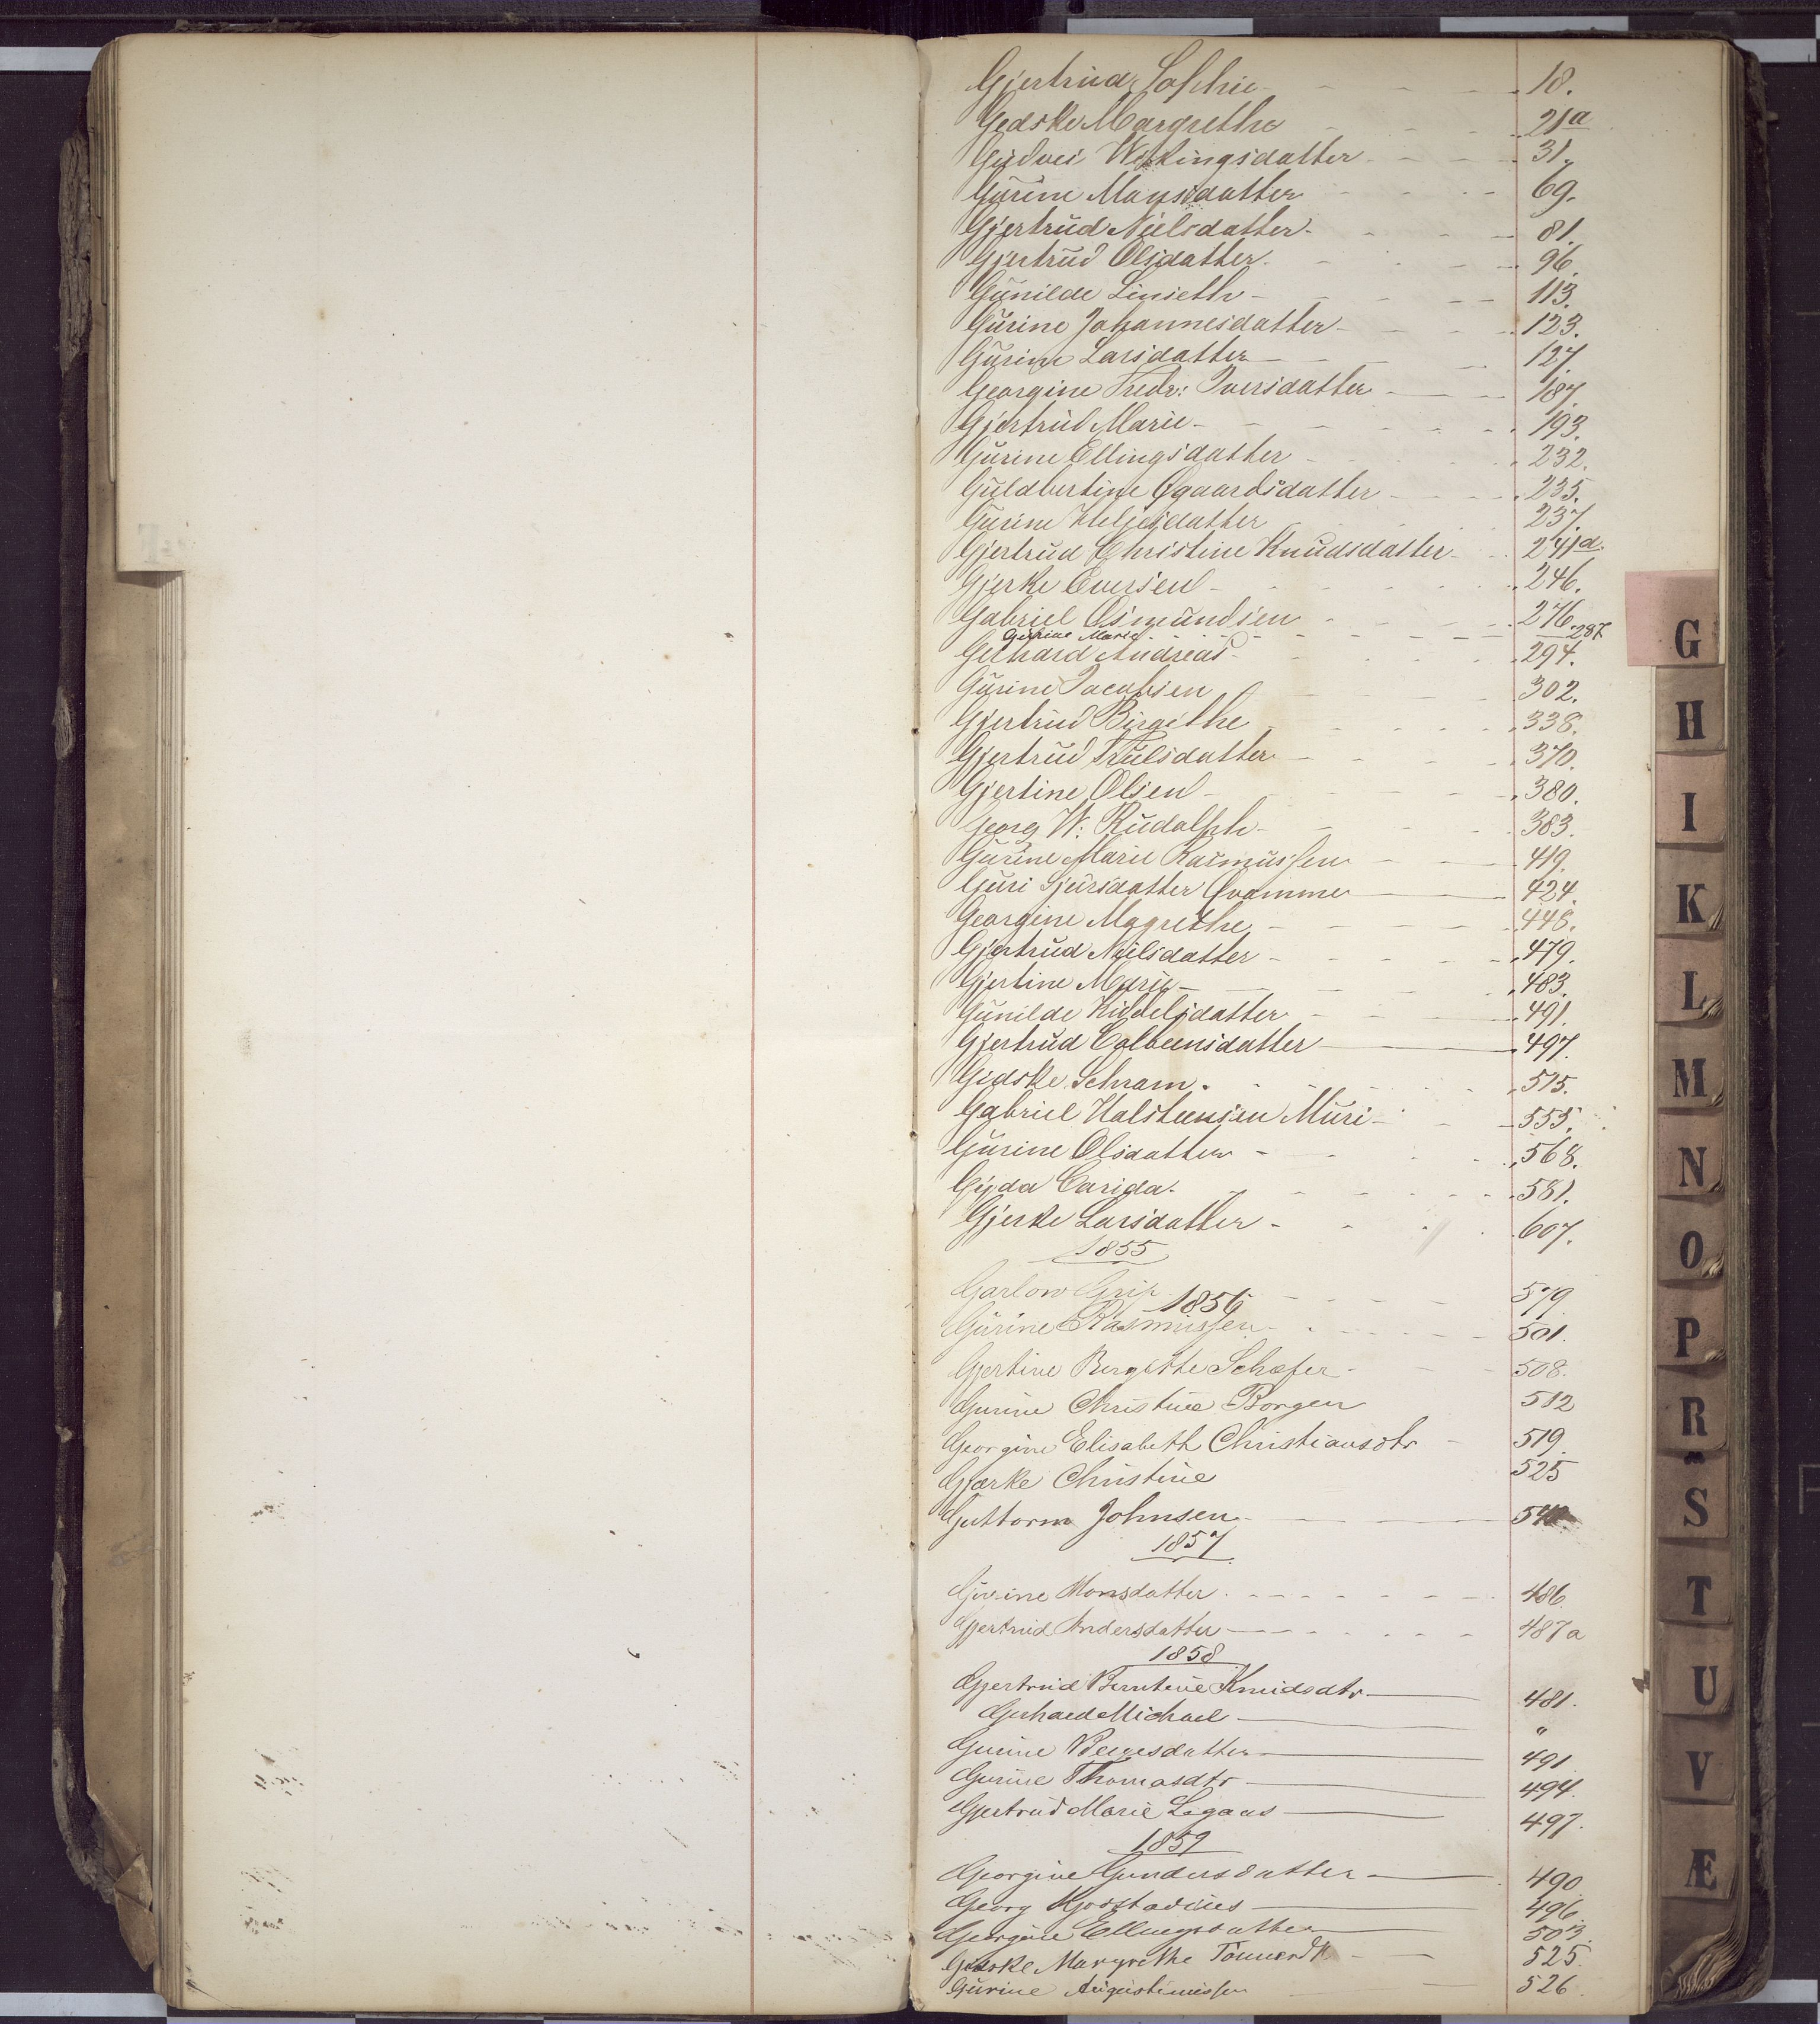 Gjertrud Sophie 18.
Gedske Margrethe 21a
Gudvei Wikingsdatter 31.
Gurine Monsdatter 69.
Gjertrud Nielsdatter 81.
Gjertrud Olsdatter 96.
Gunilde Linseth 113.
Gurine Johannesdatter 123.
Gurine Larsdatter 127.
Georgine Fredr: Iversdatter 187.
Gjertrud Marie 193.
Gurine Ellingsdatter 232.
Guldbertine Ogaardsdatter 235.
Gurine Heljesdatter 237.
Gjertrud Christine Knudsdatter 241d.
Gjerke Eversen 246.
Gabriel Osmundsen 276.
Gurine Marie 287
Gerhard Andreas 294.
Gurine Jacobsen 302.
Gjertrud Birgithe 338.
Gjertrud Trulsdatter 370.
Gjertine Olsen 380.
Georg W: Rudolph 383.
Gurine Marie Rasmussen 419.
Guri Sjursdatter Qvamme 424.
Georgine Magrethe 448.
Gjertrud Neilsdatter 479.
Gjertine Marie 483.
Gunilde Kiddelsdatter 491.
Gjertrud Colbensdatter 497.
Gidske Schram. 515.
Gabriel Halsteensen Muri 555.
Gurine Olsdatter 568.
Gyda Carida. 581.
Gjerke Larsdatter 607.
1855
Garlow Grip 579
1856
Gurine Rasmussen 501.
Gjertine Birgitte Schæfer 508.
Gurine Christine Borgen 512
Georgine Elisabeth Christiansdtr 519.
Gjærke Christine 525
Guttorm Johnsen
1857
Gurine Monsdatter 486.
Gjertrud Andersdatter 487a
1858
Gjertrud Berntine Knudsdtr 481.
Gerhard Michael "
Gurine 491
Gurine Thomasdtr 494.
Gjertrud Marie Legaas 497.
1859
Georgine Gundersdatter 490
Georg 496.
Georgine Ellingsdatter 503.
Gidske Margrethe 525.
Gurine Augustinussen 526.
G
H
I
K
L
M
N
O
P
R
S
T
U
V
Æ